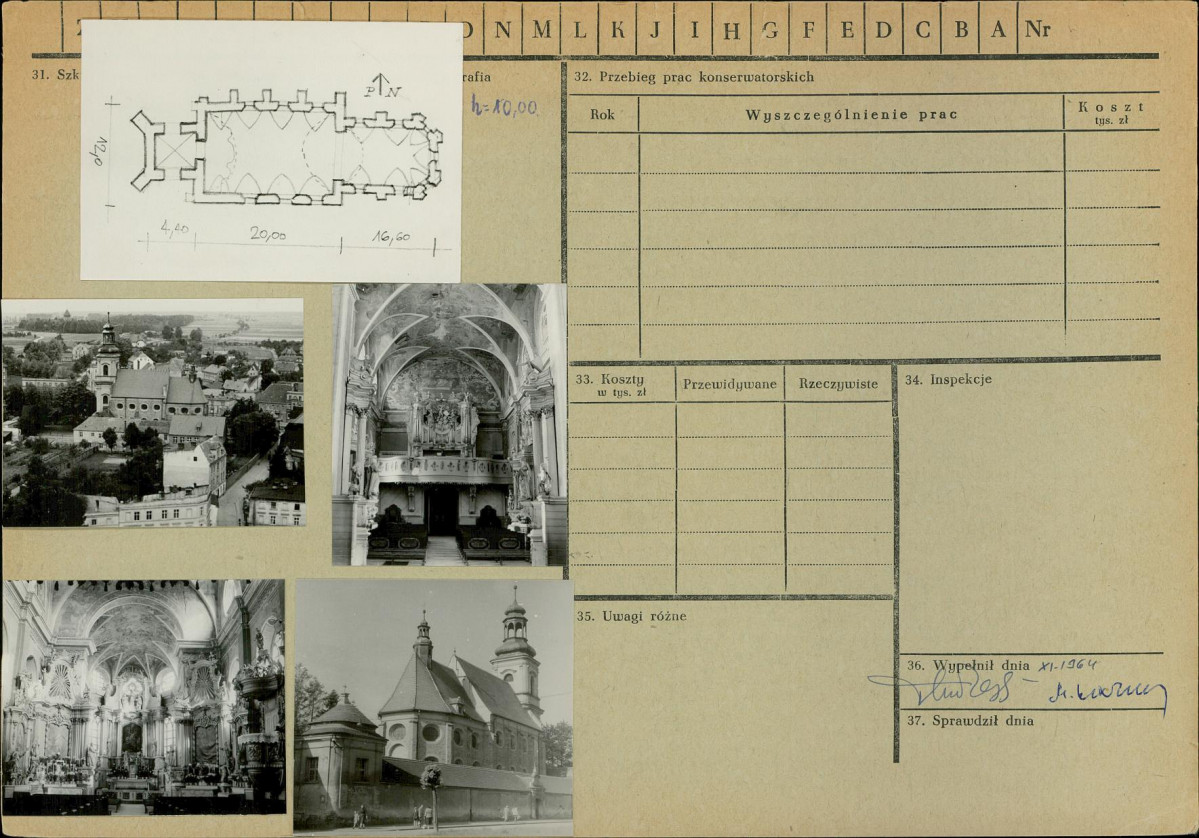 O N M L K J I H G F E D C B A Nr
31. Szk
rafia
h=10,00
P N
12,0
4,40 20,00 16,60
32. Przebieg prac konserwatorskich
Rok Wyszczególnienie prac Koszt
tys. zł
33. Koszty
w tys. zł
Przewidywane Rzeczywiste
34. Inspekcje
35. Uwagi różne
36. Wypełnił dnia XI-1964
37. Sprawdził dnia